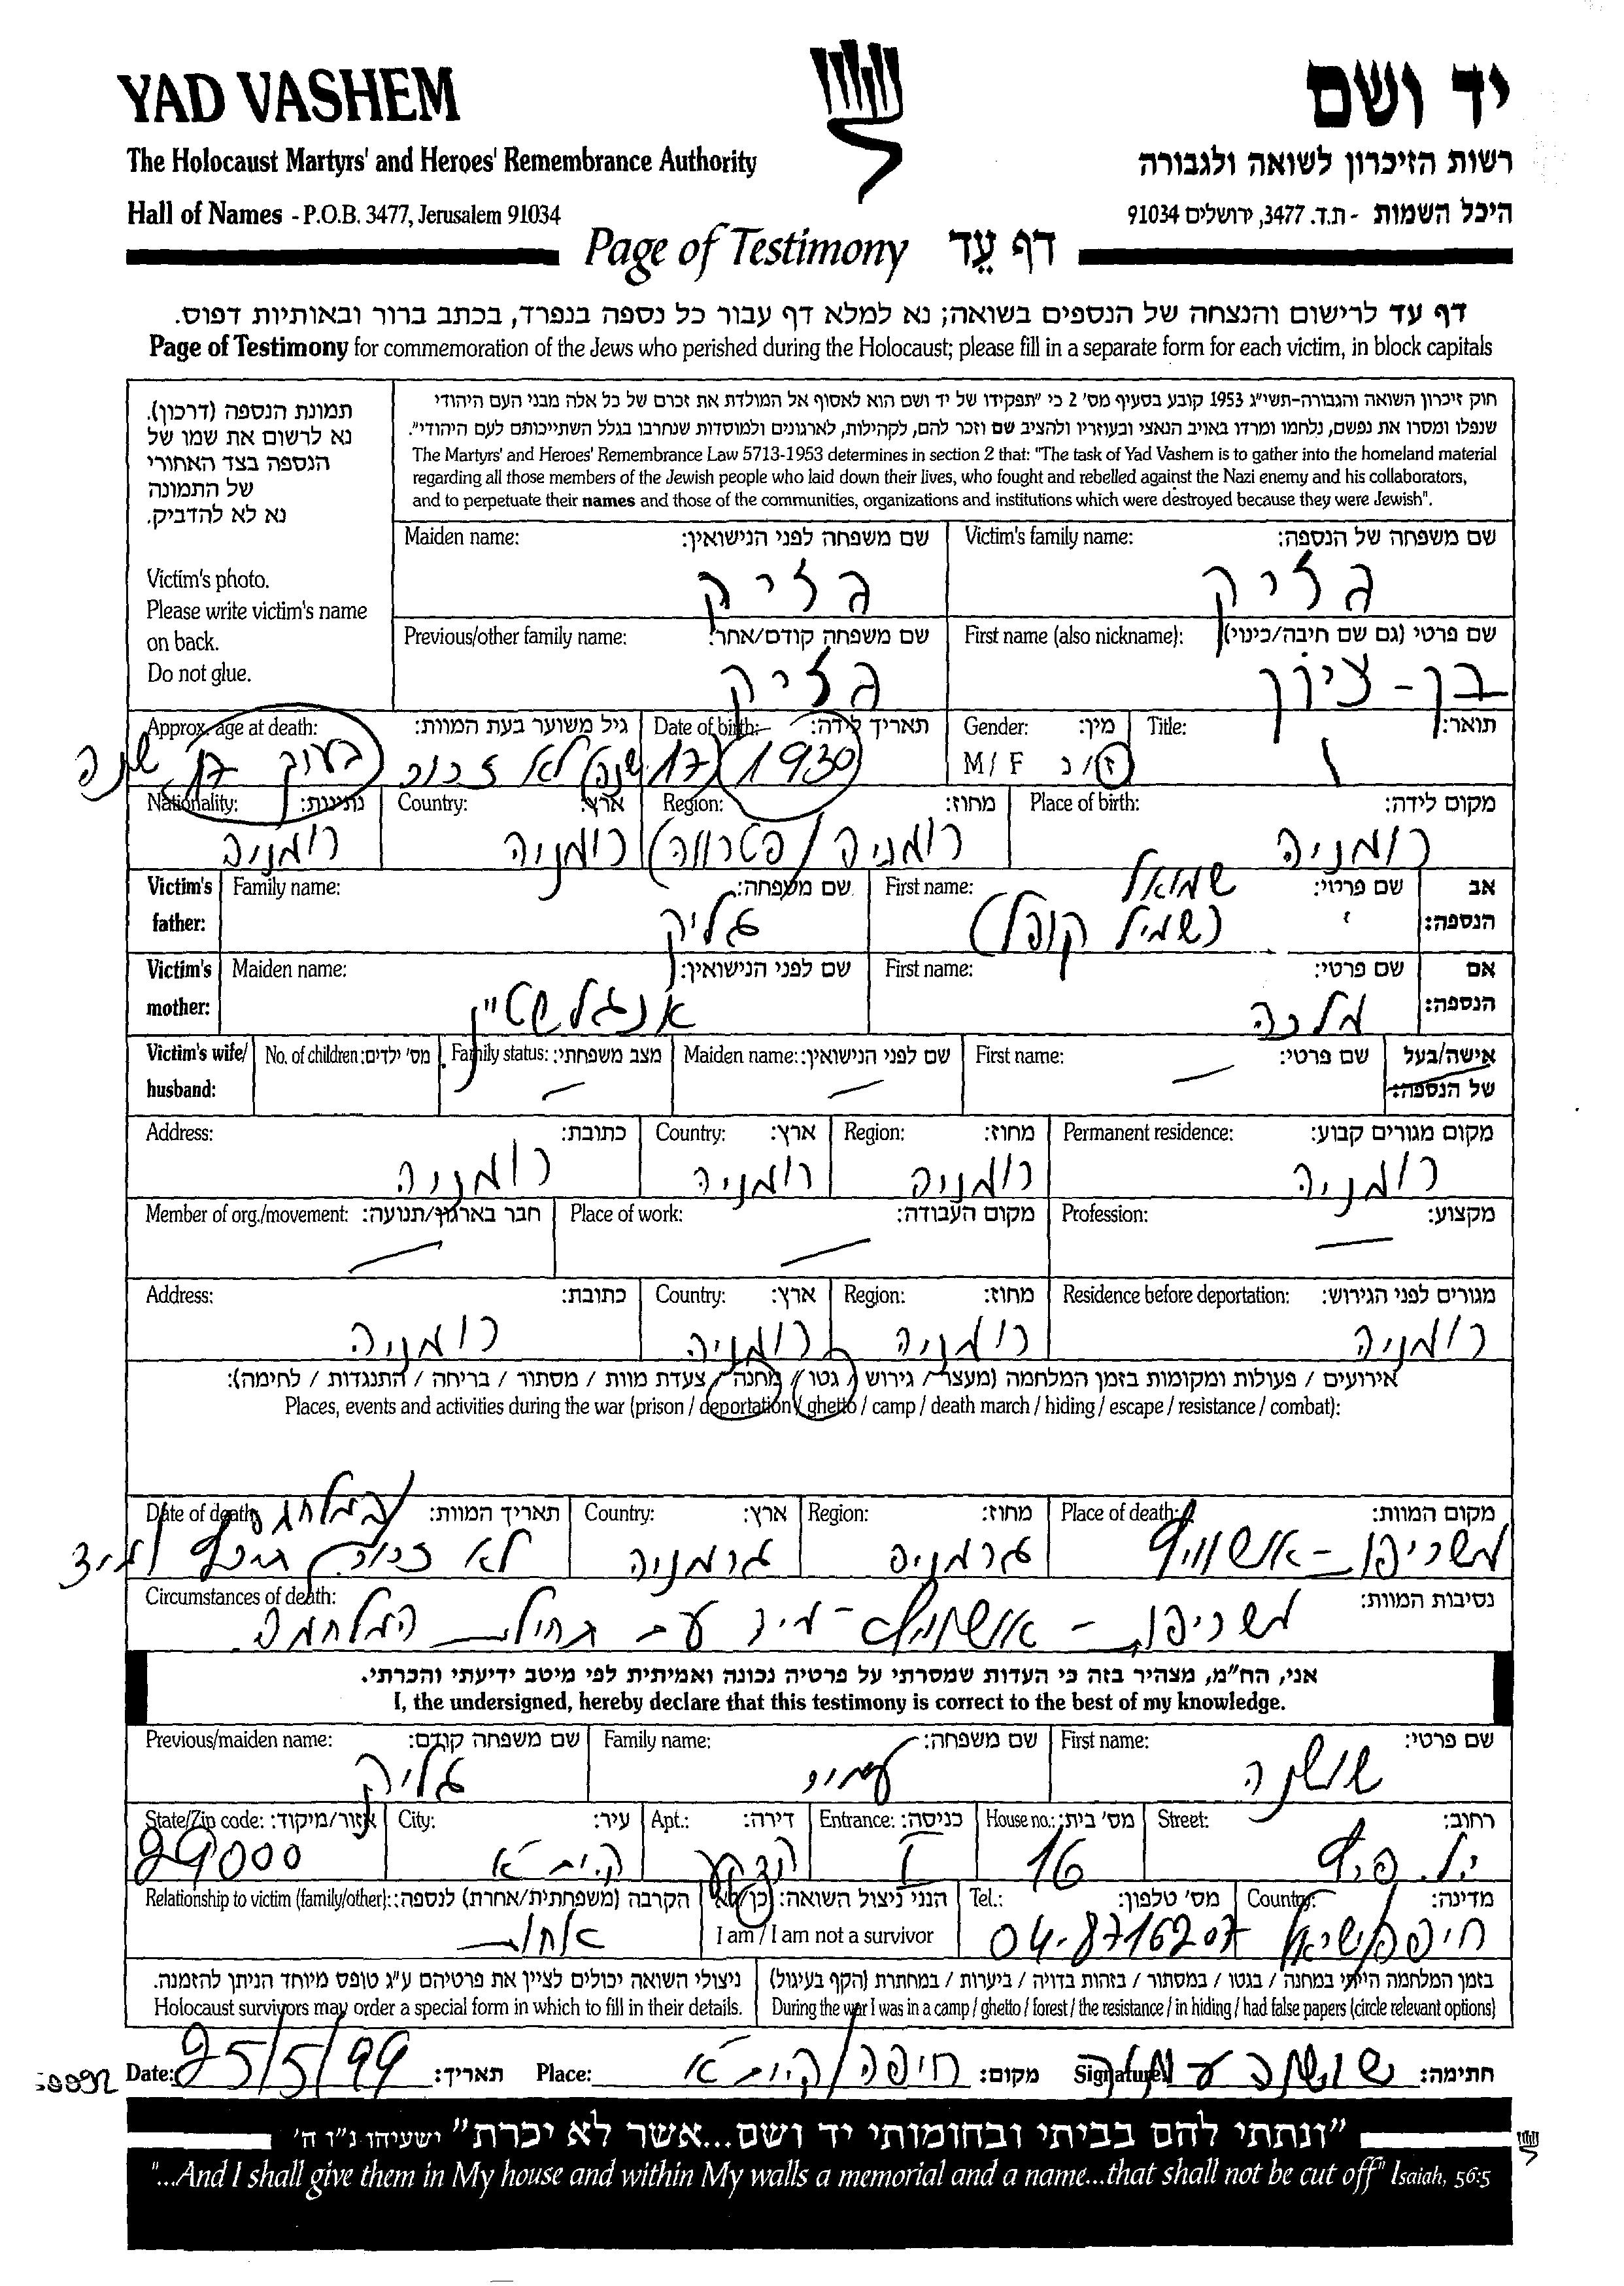 YAD VASHEM
יד ושם
The Holocaust Martyrs' and Heroes' Remembrance Authority
רשות הזיכרון לשואה ולגבורה
Hall of Names - P.O.B. 3477, Jerusalem 91034
היכל השמות - ת.ד. 3477, ירושלים 91034
Page of Testimony דף עֵד
דף עד לרישום והנצחה של הנספים בשואה; נא למלא דף עבור כל נספה בנפרד, בכתב ברור ובאותיות דפוס.
Page of Testimony for commemoration of the Jews who perished during the Holocaust; please fill in a separate form for each victim, in block capitals
תמונת הנספה (דרכון).
נא לרשום את שמו של
הנספה בצד האחורי
של התמונה
נא לא להדביק.
Victim's photo.
Please write victim's name
on back.
Do not glue.
חוק זיכרון השואה והגבורה-תשי"ג 1953 קובע בסעיף מס' 2 כי "תפקידו של יד ושם הוא לאסוף אל המולדת את זכרם של כל אלה מבני העם היהודי
שנפלו ומסרו את נפשם, נלחמו ומרדו באויב הנאצי ובעוזריו ולהציב שם וזכר להם, לקהילות, לארגונים ולמוסדות שנחרבו בגלל השתייכותם לעם היהודי".
The Martyrs' and Heroes' Remembrance Law 5713-1953 determines in section 2 that: "The task of Yad Vashem is to gather into the homeland material
regarding all those members of the Jewish people who laid down their lives, who fought and rebelled against the Nazi enemy and his collaborators,
and to perpetuate their names and those of the communities, organizations and institutions which were destroyed because they were Jewish".
Victim's family name: שם משפחה של הנספה:
גליק
Maiden name: שם משפחה לפני הנישואין:
גליק
First name (also nickname): שם פרטי (גם שם חיבה/כינוי)
בן-ציון
Previous/other family name: שם משפחה קודם/אחר:
גליק
Title: תואר:
Gender: מין:
M / F ז/נ
Date of birth: תאריך לידה:
1930
Approx. age at death: גיל משוער בעת המוות:
17 שנה לא זכור
בערך 17 שנה
Place of birth: מקום לידה:
רומניה
Region: מחוז:
רומניה / פטרווה
Country: ארץ:
רומניה
Nationality: נתינות:
רומניה
Victim's father: אב הנספה:
First name: שם פרטי:
שמואל
(שמיל קופל)
Family name: שם משפחה:
גליק
Victim's mother: אם הנספה:
First name: שם פרטי:
מלכה
Maiden name: שם לפני הנישואין:
אנגלשטיין
Victim's wife/ husband: אישה/בעל של הנספה:
First name: שם פרטי:
Maiden name: שם לפני הנישואין:
Family status: מצב משפחתי:
No. of children: מס' ילדים:
Permanent residence: מקום מגורים קבוע:
רומניה
Region: מחוז:
רומניה
Country: ארץ:
רומניה
Address: כתובת:
רומניה
Profession: מקצוע:
Place of work: מקום העבודה:
Member of org./movement: חבר בארגון/תנועה:
Residence before deportation: מגורים לפני הגירוש:
רומניה
Region: מחוז:
רומניה
Country: ארץ:
רומניה
Address: כתובת:
רומניה
אירועים / פעולות ומקומות בזמן המלחמה (מעצר / גירוש / גטו / מחנה / צעדת מוות / מסתור / בריחה / התנגדות / לחימה):
Places, events and activities during the war (prison / deportation / ghetto / camp / death march / hiding / escape / resistance / combat):
Place of death: מקום המוות:
משריפה - אושוויץ
Region: מחוז:
גרמניה
Country: ארץ:
גרמניה
Date of death: תאריך המוות:
לא זכור
Circumstances of death: נסיבות המוות:
משריפה - אושוויץ - מיד עם תחילת המלחמה
אני, הח"מ, מצהיר בזה כי העדות שמסרתי על פרטיה נכונה ואמיתית לפי מיטב ידיעתי והכרתי.
I, the undersigned, hereby declare that this testimony is correct to the best of my knowledge.
First name: שם פרטי:
שושנה
Family name: שם משפחה:
Previous/maiden name: שם משפחה קודם:
גליק
Street: רחוב:
House no.: מס' בית:
16
Entrance: כניסה:
Apt.: דירה:
City: עיר:
ק. ים
State/Zip code: אזור/מיקוד:
29000
Country: מדינה:
חיפה/ישראל
Tel.: מס' טלפון:
04-8716207
הנני ניצול השואה: כן/לא
I am / I am not a survivor
Relationship to victim (family/other): הקרבה (משפחתית/אחרת) לנספה:
אחות
בזמן המלחמה הייתי במחנה / בגטו / במסתור / בזהות בדויה / ביערות / במחתרת (הקף בעיגול)
During the war I was in a camp / ghetto / forest / the resistance / in hiding / had false papers (circle relevant options)
ניצולי השואה יכולים לציין את פרטיהם ע"ג טופס מיוחד הניתן להזמנה.
Holocaust survivors may order a special form in which to fill in their details.
Date: 25/5/99 תאריך: Place: חיפה/ק. ים מקום: Signature: שושנה חתימה:
"ונתתי להם בביתי ובחומותי יד ושם...אשר לא יכרת" ישעיהו נ"ו ה'
"...And I shall give them in My house and within My walls a memorial and a name...that shall not be cut off" Isaiah, 56:5